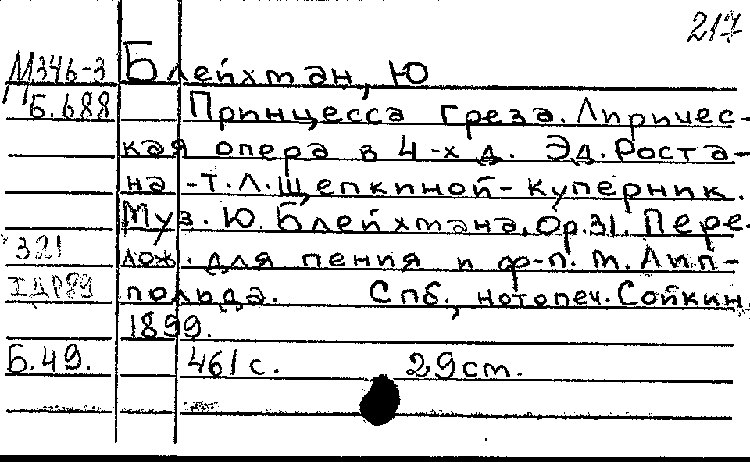 217
М346-3 Блейхман, Ю
Б.688 Принцесса греза. Лиричес-
кая опера в 4-х д. Эд. Роста-
на - Т.Л. Щепкиной-Куперник.
Муз. Ю. Блейхмана. Ор. 31. Пере-
321 лож. для пения и ф-п. М. Лип-
польда. Спб., нотопеч. Сойкин.
1899.
Б.49. 461 с. 29 см.